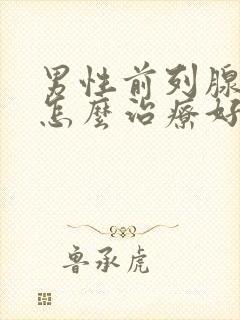 男性前列腺
怎麼治療好
魯承虎